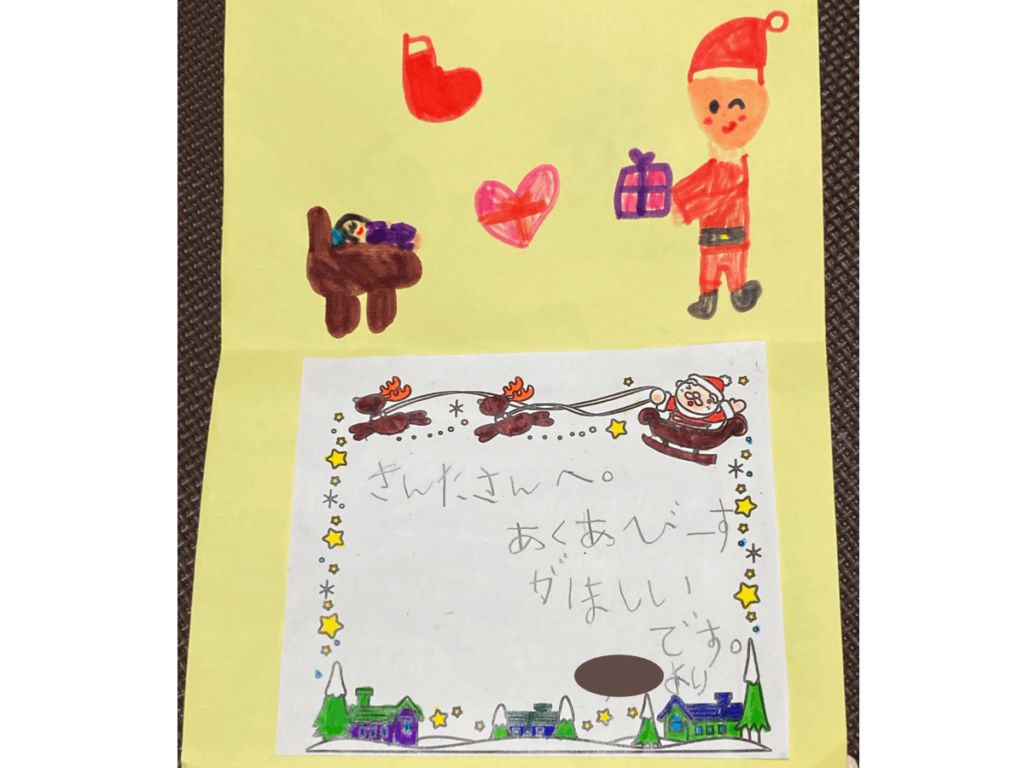 きんたさんへ。
あくあびーす
がほししい
です。
より